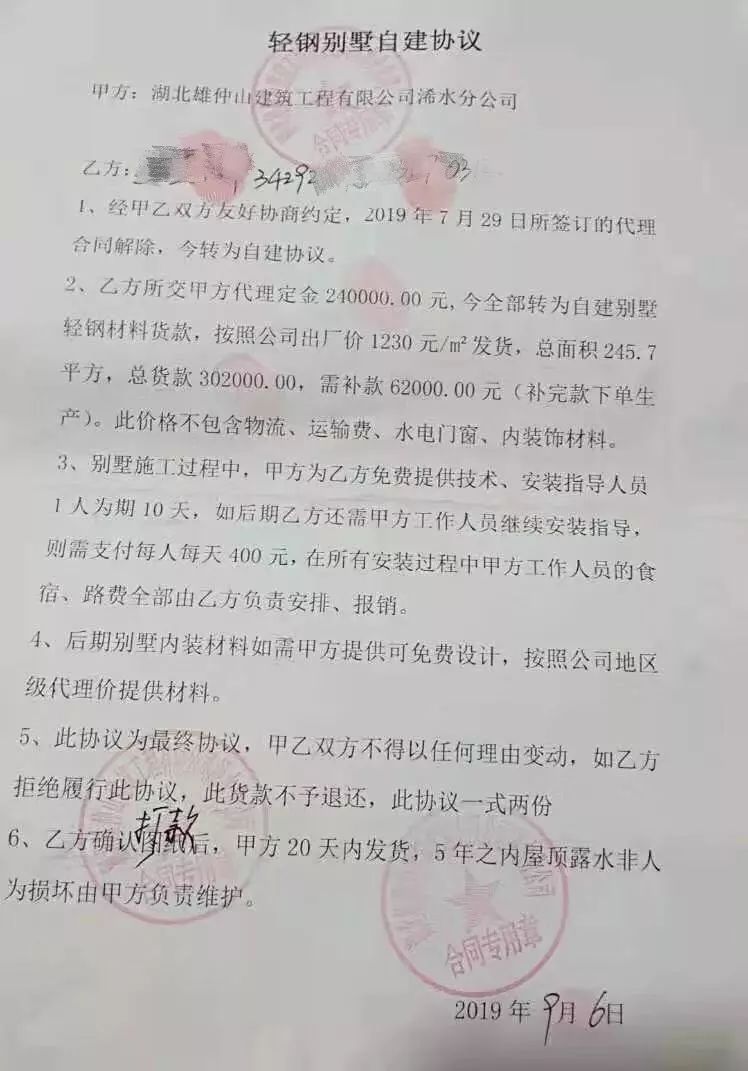 轻钢别墅自建协议
甲方：湖北雄仲山建筑工程有限公司浠水分公司
乙方：34292 03
1、经甲乙双方友好协商约定，2019年7月29日所签订的代理
合同解除，今转为自建协议。
2、乙方所交甲方代理定金240000.00元,今全部转为自建别墅
轻钢材料货款，按照公司出厂价1230元/㎡发货，总面积245.7
平方，总货款302000.00，需补款62000.00元（补完款下单生
产）。此价格不包含物流、运输费、水电门窗、内装饰材料。
3、别墅施工过程中，甲方为乙方免费提供技术、安装指导人员
1人为期10天，如后期乙方还需甲方工作人员继续安装指导，
则需支付每人每天400元，在所有安装过程中甲方工作人员的食
宿、路费全部由乙方负责安排、报销。
4、后期别墅内装材料如需甲方提供可免费设计，按照公司地区
级代理价提供材料。
5、此协议为最终协议，甲乙双方不得以任何理由变动，如乙方
拒绝履行此协议，此货款不予退还，此协议一式两份
打款
6、乙方确认图纸后，甲方20天内发货，5年之内屋顶露水非人
为损坏由甲方负责维护。
合同专用章
合同专用章
合同专用章
2019年9月6日